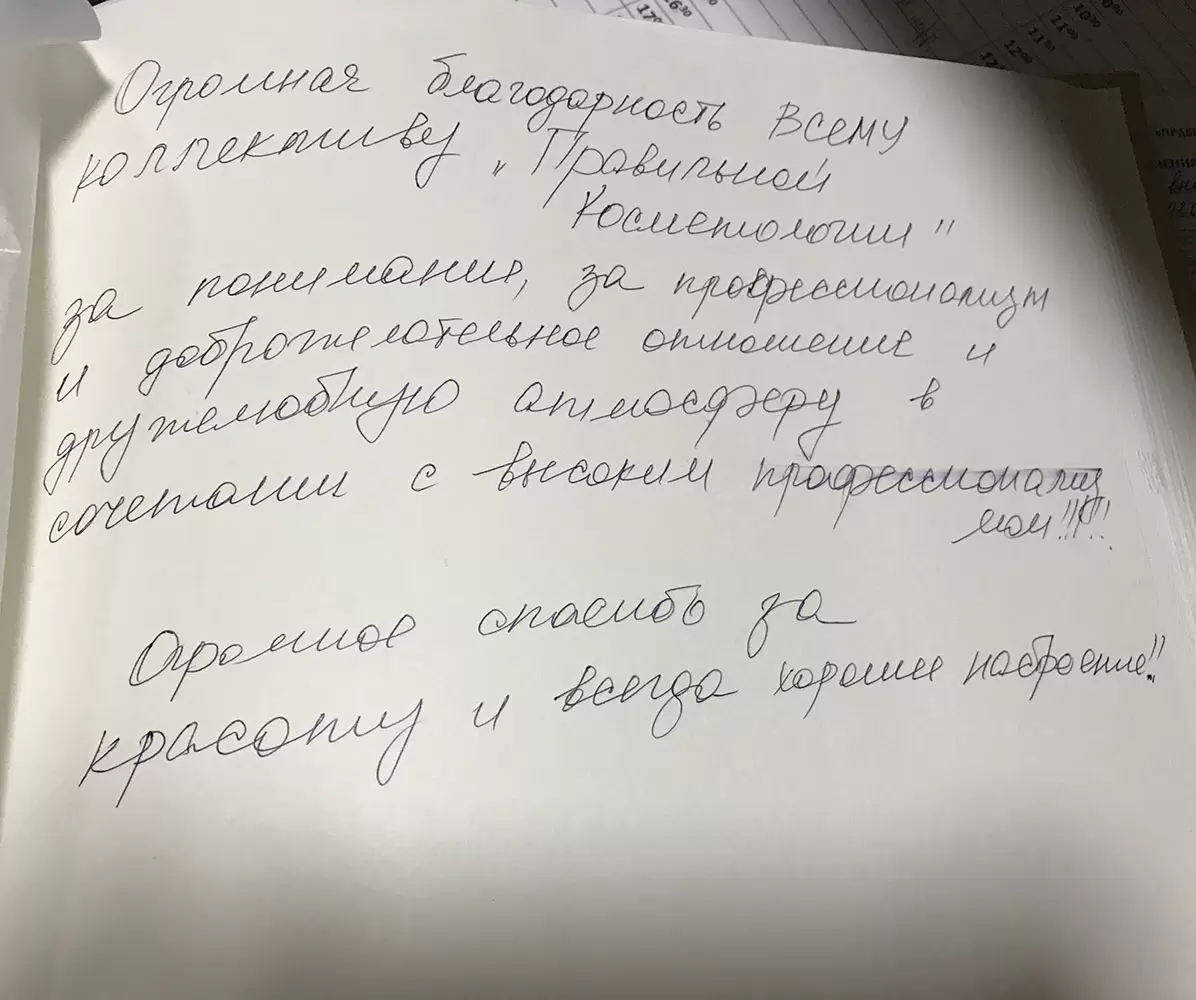 Огромная благодарность всему
коллективу „Правильной
Косметологии"
за понимание, за профессионализм
и доброжелательное отношение и
дружелюбную атмосферу в
сочетании с высоким профессионализ
мом!!!!!
Огромное спасибо за
красоту и всегда хорошее настроение!!
16³⁰
17⁰⁰
10³⁰
11⁰⁰
11³⁰
12⁰⁰